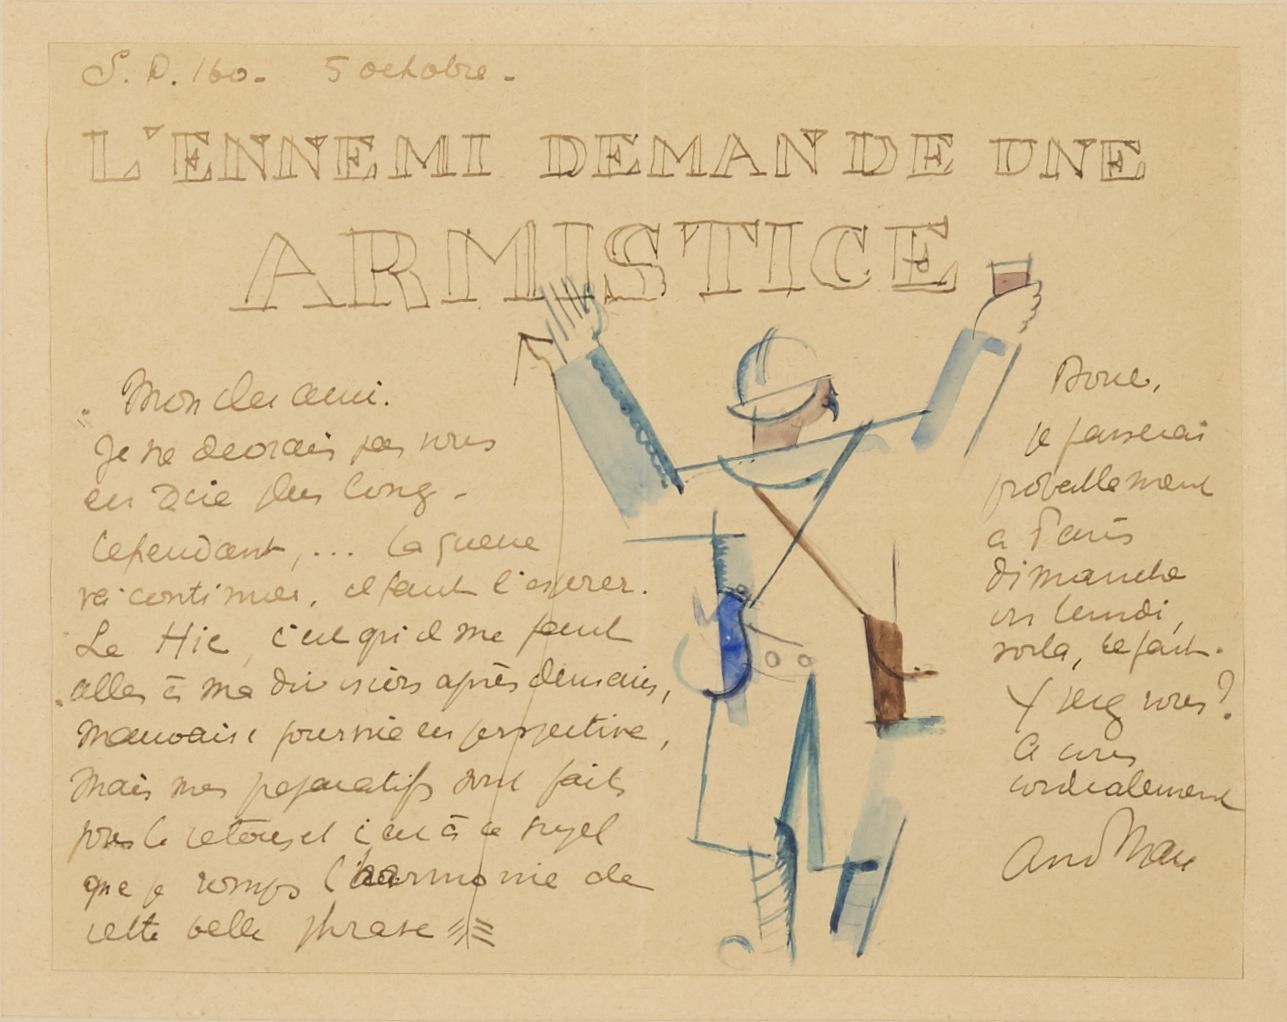 S. P. 160. 5 octobre.
L'ENNEMI DEMANDE UNE
ARMISTICE
Mon cher ami.
Je ne devrais pas vous
en dire plus long.
Cependant, ... la guerre
va continuer, il faut l'espérer.
Le Hic, c'est qu'il me faut
aller à ma division après demain,
mauvaise journée en perspective,
mais mes préparatifs sont faits
pour le retour et c'est à ce sujet
que je romps l'harmonie de
cette belle phrase
Donc,
je passerai
probablement
à Paris
dimanche
ou lundi,
voilà, le fait.
Y serez vous?
A vous
cordialement
And Mare